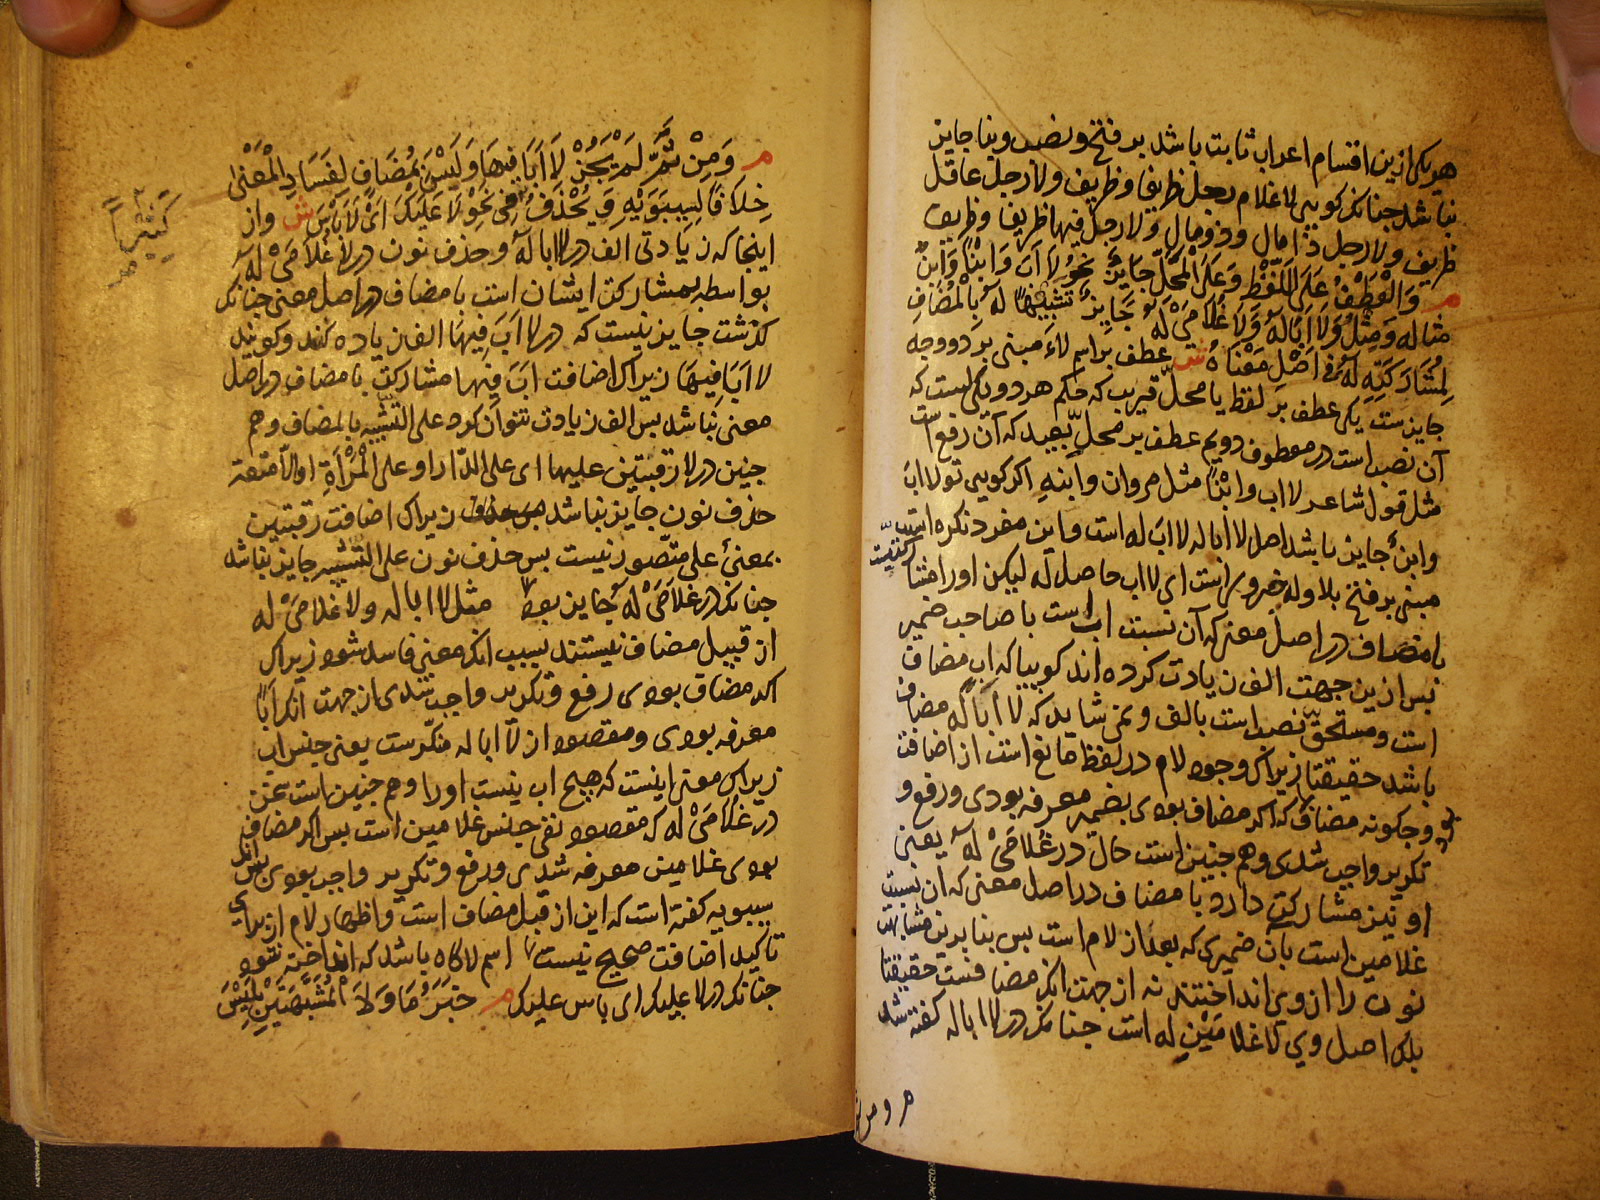 هر یکی ازین اقسام اعراب ثابت باشد بر فتح و نصب و بنا جایز
نباشد جنانکه کویی لا غلام رجل ظریفا و ظریف و لا رجل عاقل
ظریف ولا رجل ذا مال وذو مال و لا رجل فیها ظریفا و ظریف
م وَالْعَطْفُ عَلَى اللَّفْظِ وَعَلَى الْمَحَلِّ جَايِزٌ نحو لَا اَبَ وَابْنًا وَابْنٌ
مثاله وَمِثْلُ وَلَا اَبَا لَهُ وَلَا غُلَامَیْ لَهُ جَايِزٌ تَشْبِيهًا لَهُ بِالْمُضَافِ
لِمُشَارَكَتِهِ لَهُ فِی اَصْلِ مَعْنَاهُ ش عطف بر اسم لاءَ مبنی بر دو وجه
جایزست یکی عطف بر لفظ یا محلّ قریب که حکم هر دو یکیست که
آن نصب است در معطوف دویم عطف بر محلّ بعید که آن رفع است
مثل قول شاعر لا اب وابنًا مثل مروان وابنهِ اکر کویی تو لا ابَ
وابنٌ جایز باشد اصل لا ابا له لا ابَ له است و این مفرد نکره است
مبنی بر فتح بلا و له خبر وی است ای لا اب حاصل له لیکن اورا مشارکتیست
با مضاف در اصل معنی که آن نسبت اب است با صاحب ضمیر
بس ازین جهت الف زیادت کرده اند کوییا که اب مضاف
است و مستحق نصب است بالف و نمی شاید که لا اَبَا لَه مضاف
باشد حقیقتا زیراک وجود لام در لفظ مانع است از اضافت
و جکونه مضاف که اکر مضاف بودی بضمیر معرفه بودی و رفع و
تکریر واجب شدی و هم جنین است حال در غُلَامَیْ لَه یعنی
او نیز مشارکتی دارد با مضاف در اصل معنی که آن نسبت
غلامین است بآن ضمیری که بعد از لام است بس بنابرین مشابهت
نون را از وی انداختند نه از جهت انکه مضافست حقیقتا
بلکه اصل وی لا غلامَیْنِ له است جنانکه در لا ابا له کفته شد
م و من ثم
م وَمِنْ ثَمَّ لَمْ يَجُزْ لَا اَبَا فِيهَا وَلَيْسَ بِمُضَافٍ لِفَسَادِ الْمَعْنَىٰ
خِلَافًا لِسِيبَوَيْهِ وَيُحْذَفُ فِی نَحْوِ لَا عَلَيْكَ اَیْ لَا بَأْسَ ش و از
كَثِيْرًا
اینجا که زیادتی الف در لا ابا لَه و حذف نون در لا غُلَامَیْ لَه
بواسطه مشارکت ایشان است با مضاف در اصل معنی جنانکه
کذشت جایز نیست که در لا ابَ فِيهَا الف زیاده کنند و کویند
لا اَبَا فِيهَا زیراک اضافت ابَ فیها مشارکت با مضاف در اصل
معنی نباشد بس الف زیادت نتوان کرد علی التشبیه بالمضاف و هم
جنین در لا رقبتین علیها ای علی الدّار او علی الْمَرْأَةِ او الامتعة
حذف نون جایز نباشد زیراک اضافت رقبتین
بمعنیٔ علی متصّور نیست بس حذف نون علی التشبیه جایز نباشد
جنانکه در غُلَامَیْ لَهُ جایز بود مثل لا ابا له ولا غلامَیْ له
از قبیل مضاف نیستند بسبب انکه معنی فاسد شود زیراک
اکر مضاف بودی رفع و تکریر واجب شدی از جهت انکه ابا
معرفه بودی و مقصود از لا ابا له منکّرست یعنی جنس اب
زیراک معنی اینست که هیج اب نیست اورا و هم جنین است
در غلامَیْ له که مقصود نفی جنس غلامین است بس اکر مضاف
بودی غلامین معرفه شدی و رفع و تکریر واجب بودی
سیبویه کفته است که این از قبیل مضاف است و اظهار لام از برای
تاکید اضافت صحیح نیست اسم لا کاه باشد که انداخته شود
جنانکه در لا علیک ای باس علیک م خَبَرُ مَا وَلَا الْمُشَبَّهَتَيْنِ بِلَيْسَ